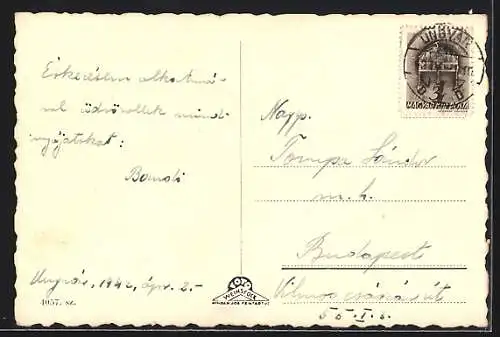 Érkezésem alkalmá-
val üdvözöllek mind-
nyájatokat:
Bandi
Ungvár, 1942, ápr. 2.-
4057. sz.
WEINSTOCK
UNGVÁR
3
MAGYAR KIR. POSTA
Nagys.
Tompa Sándor
m. h.
Budapest
Vilmos császár út
55. I. 6.